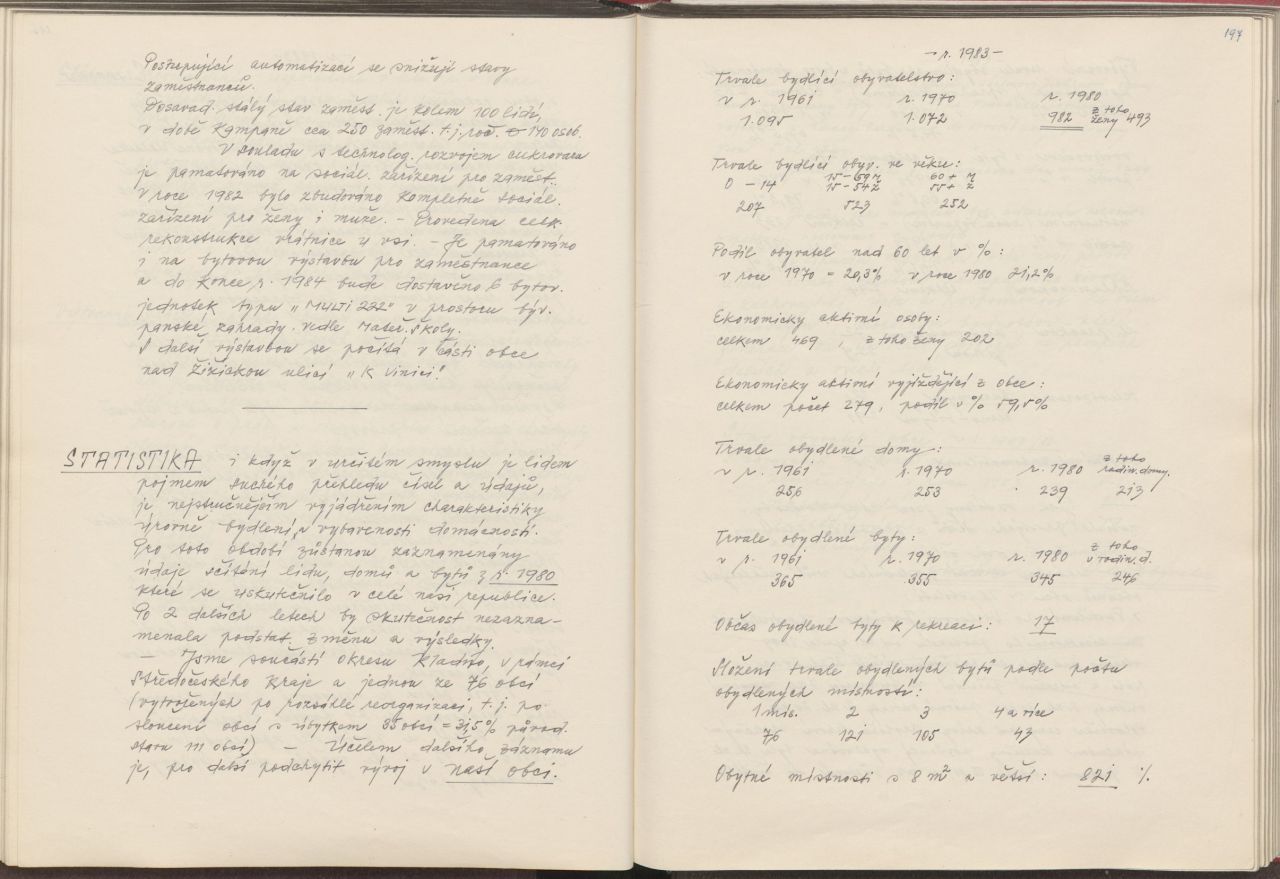 Postupující automatizací se snižují stavy
zaměstnanců.
Dosavad. stálý stav zaměst. je kolem 100 lidí,
v době kampaně cca 250 zaměst. t.j. roč. 140 osob.
V souladu s technolog. rozvojem cukrovaru
je pamatováno na sociál. zařízení pro zaměst.
V roce 1982 bylo zbudováno kompletně sociál.
zařízení pro ženy i muže. - Provedena celk.
rekonstrukce vrátnice u vsi. - Je pamatováno
i na bytovou výstavbu pro zaměstnance
a do konce r. 1984 bude dostavěno 6 bytov.
jednotek typu "MULTI 222" v prostoru býv.
panské zahrady vedle Mateř. školy.
S další výstavbou se počítá v části obce
nad Žižickou ulicí "K Vinici".
STATISTIKA i když v určitém smyslu je lidem
pojmem suchého přehledu čísel a údajů,
je nejstručnějším vyjádřením charakteristiky
úrovně bydlení, v vybavenosti domácností.
Pro toto období zůstanou zaznamenány
údaje sčítání lidu, domů a bytů z r. 1980
které se uskutečnilo v celé naší republice.
Po 2 dalších letech by skutečnost nezazna-
menala podstat. změnu a výsledky.
- Jsme součástí okresu Kladno, v rámci
Středočeského kraje a jednou ze 76 obcí
(vytvořených po rozsáhlé reorganizaci, t.j. po
sloučení obcí s úbytkem 35 obcí = 31,5% původ.
stavu 111 obcí) - Účelem dalšího záznamu
je, pro další podchytit vývoj v naší obci.
197
- r. 1983 -
Trvale bydlící obyvatelstvo:
v r. 1961 r. 1970 r. 1980
1.095 1.072 982 z toho ženy 493
Trvale bydlící obyv. ve věku:
0 - 14 15-59 M 60 + M
15-54 Ž 55+ Ž
207 523 252
Podíl obyvatel nad 60 let v %:
v roce 1970 = 20,3% v roce 1980 21,2%
Ekonomicky aktivní osoby:
celkem 469, z toho ženy 202
Ekonomicky aktivní vyjíždějící z obce:
celkem počet 279, podíl v % 59,5%
Trvale obydlené domy:
v r. 1961 r. 1970 r. 1980 z toho rodin. domy.
256 253 239 213
Trvale obydlené byty:
v r. 1961 r. 1970 r. 1980 z toho v rodin. d.
365 355 345 246
Občas obydlené byty k rekreaci: 17
Složení trvale obydlených bytů podle počtu
obydlených místností:
1 mís. 2 3 4 a více
76 121 105 43
Obytné místnosti s 8 m² a větší: 821 %